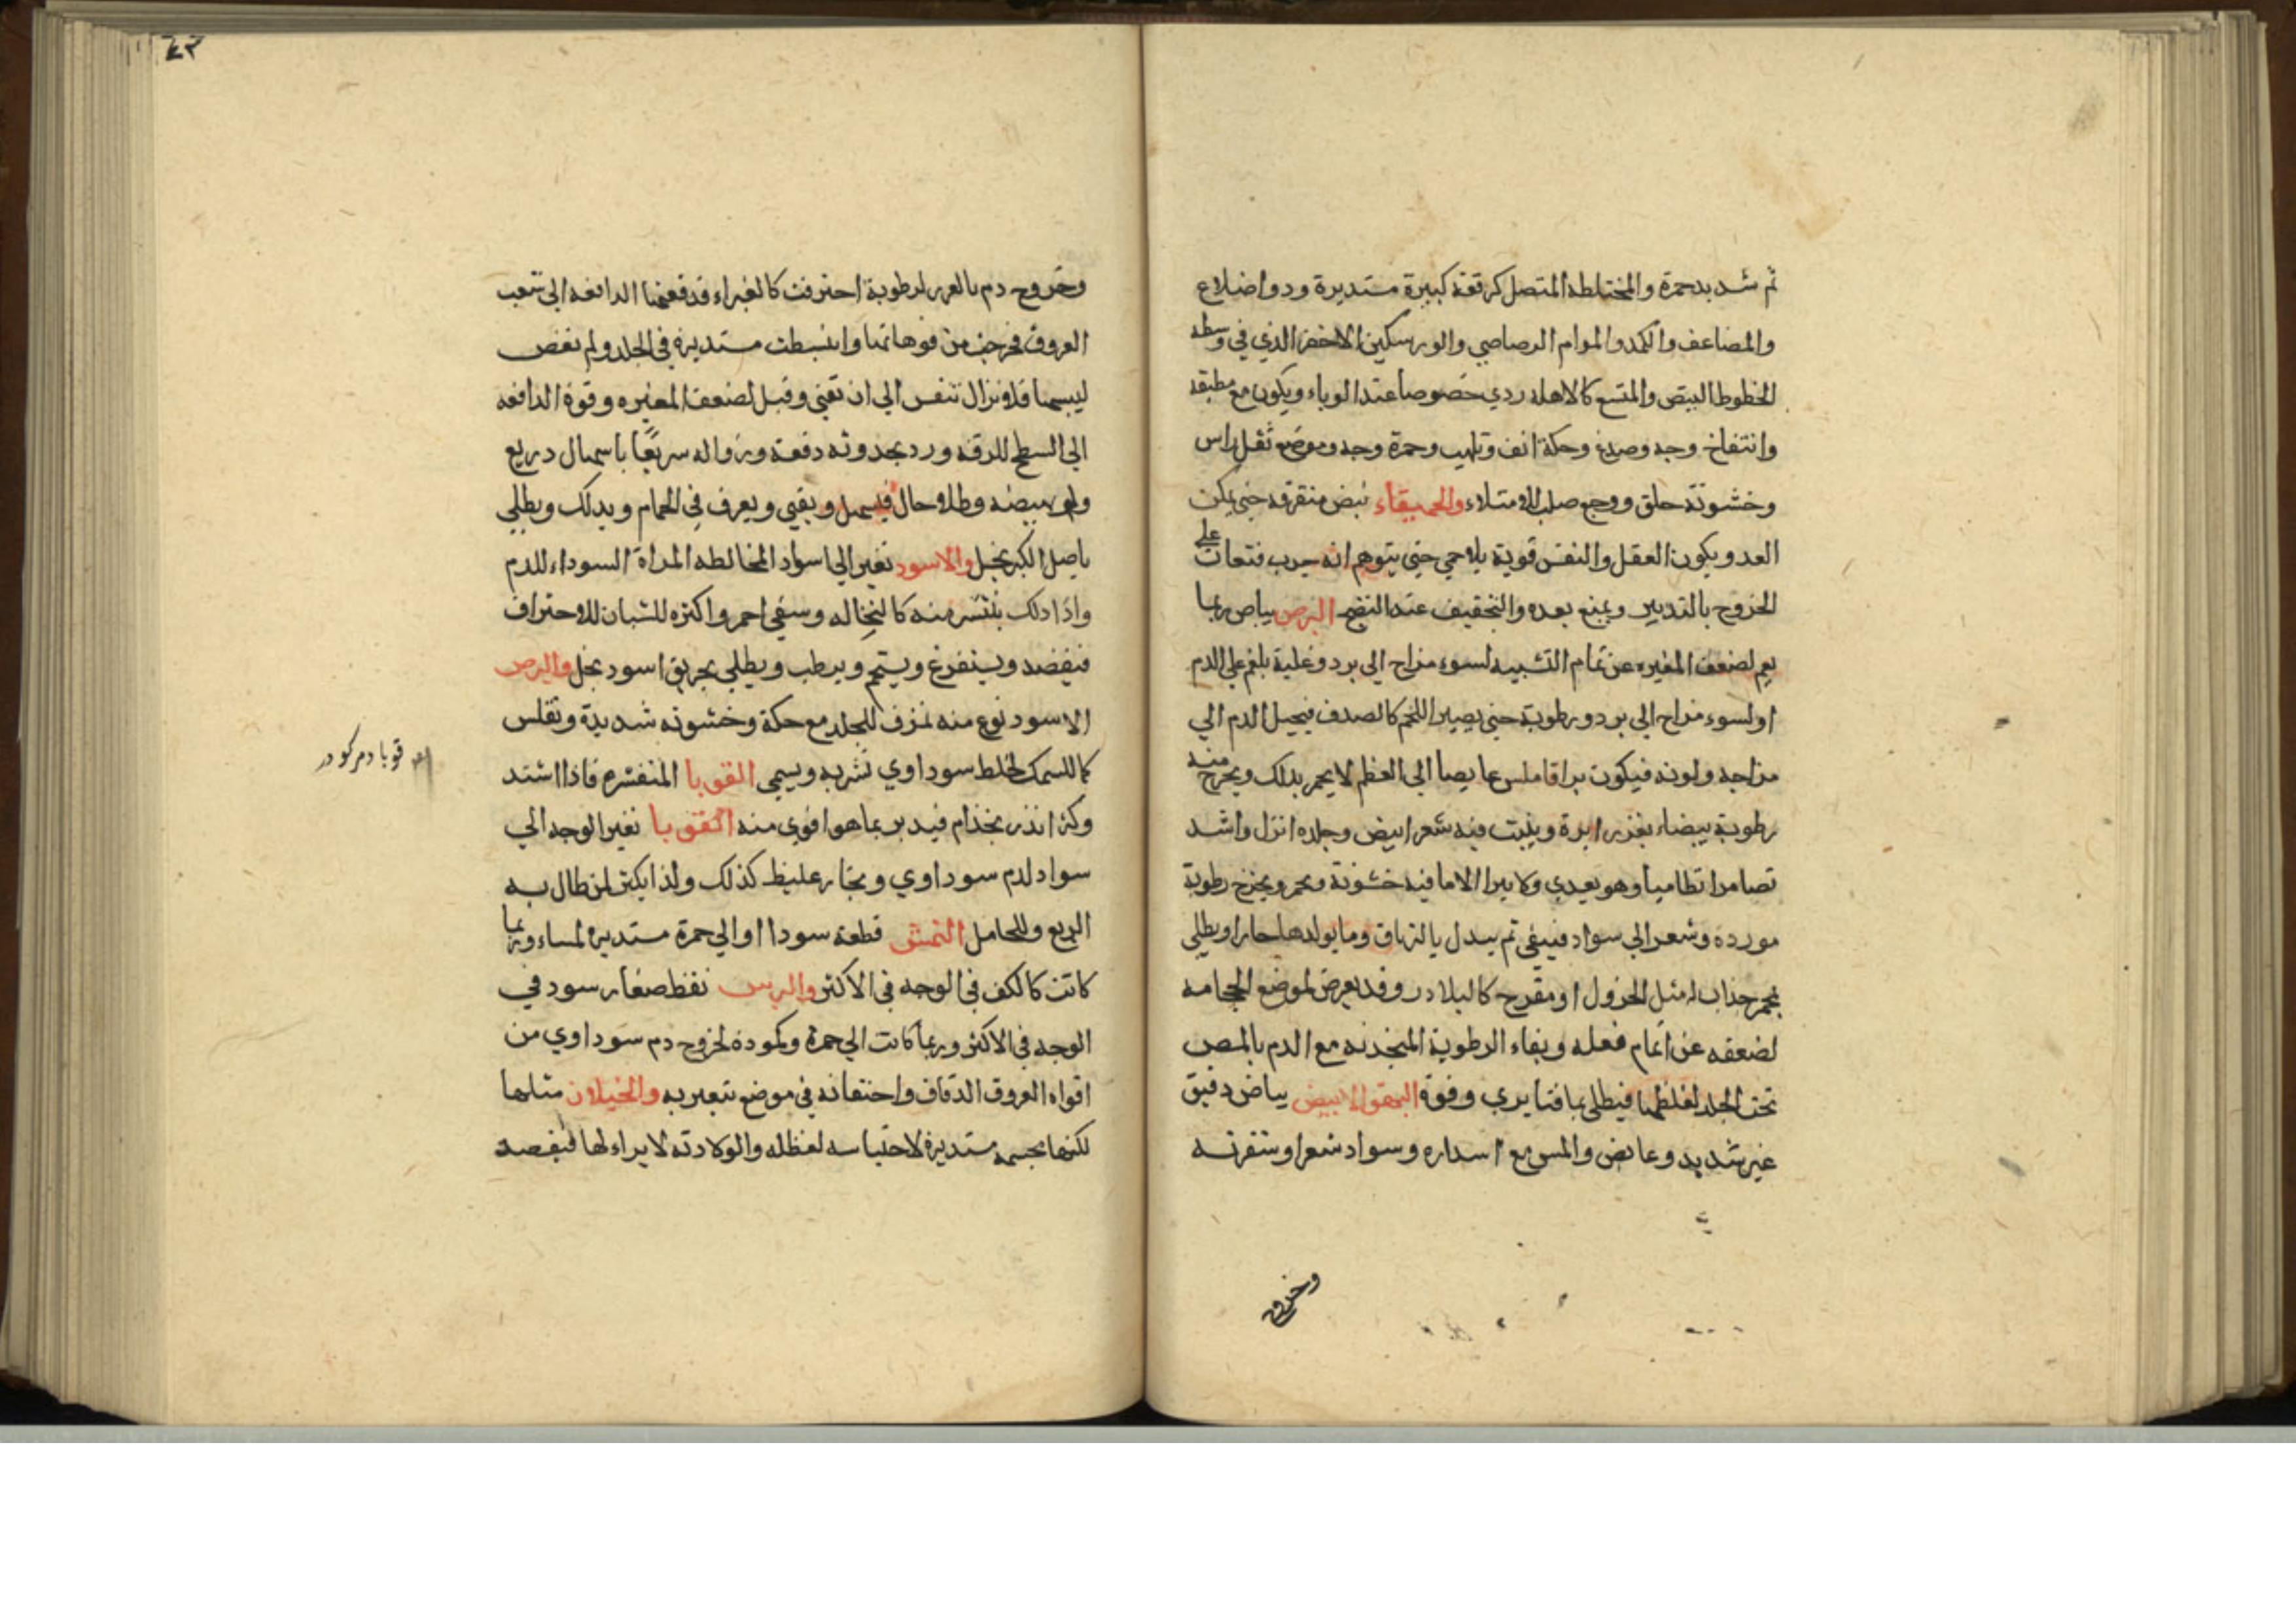 ثم شديد حمرة والمختلطه المتصل كرقعة كبيرة مستديرة ودو اضلاع
والمضاعف والكمد والموام الرصاصي والورسكين الاخضر الذي في وسطه
الخطوط البيض والمتسع كالاهله ردي خصوصا عند الوباء ويكون مع مطبقه
وانتفاخ وجه وصدغ وحكة انف وتلهب وحمرة وجه وموضع ثقل راس
وخشونة حلق ووجع صلب للامتلاء والحميقاء نبض متفرقه حتي يمكن
العد ويكون العقل والنفس قوية بلا حمي حتي يتوهم انه جرب فتعان علي
الخروج بالتدبير ويمنع بعده والتجفيف عند النضج البرص بياض ربما
يعم لضعف المغيره عن تمام التشبيه لسوء مزاج الي برد وغلبة بلغم علي الدم
او لسوء مزاج الي برد ورطوبة حتي يصير اللحم كالصدف فيحيل الدم الي
مزاجه ولونه فيكون براقا املس غايصا الي العظم لا يحمر بدلك ويخرج منه
رطوبة بيضاء بغرز ابرة وينبت فيه شعر ابيض وجلده انزل واشد
تطامنا وهو يعدي ولا يبرا الا ما فيه خشونة ويحمر ويخرج رطوبة
مورده وشعر الي سواد فينقي ثم يبدل بالترياق وما يولد دما حارا ويطلي
بمحمر جذاب له مثل الخردل او مقرح كالبلادر وقد يعرض لموضع الحجامه
لضعفه عن اتمام فعله وبقاء الرطوبة المنجذبه مع الدم بالمص
تحت الجلد لغلظها فيطلي بما قنا يري وفوة البهق الابيض بياض دقيق
غير شديد وغائض والمس مع استداره وسواد شعر او شقرته
وخروج
وخروج دم بالغرز لرطوبة احترقت كالغبراء فدفعتها الدافعه الي شعب
العروق فخرجت من فوهاتها وانبسطت مستديرة في الجلد ولم تغض
ليبسها فلا تزال تنفس الي ان تفني وقيل لضعف المغيره وقوة الدافعه
الي السطح للرقه ورد بحدوثه دفعة وزواله سريعا باسهال دريع
ولو ببيضه وطلا وحال فيسهل ويقيي ويعرف في الحمام ويدلك ويطلي
باصل الكبر بخل والاسود تغير الي اسواد لمخالطه المراة السوداء للدم
واذا دلك ينتشر منه كالنخاله وسفي احمر واكثره للشبان للاحتراق
فيفصد ويستفرغ ويستحم ويرطب ويطلي بحريق اسود بخل والبرص
الاسود نوع منه مزق للجلد مع حكة وخشونه شديدة وتفلس
كاللسمك لخلط سوداوي تشربه ويسمي القوبا المتقشره فاذا اشتد
وكثر انذر بجذام فيدبر بما هو اقوي منه القوبا تغير الوجه الي
سواد لدم سوداوي وبخار غليظ كذلك ولذا يكثر لمن طال به
الربع وللحامل النمش قطعة سودا او الي حمرة مستديرة لمساء وربما
كانت كالكف في الوجه في الاكثر والبرش نقط صغار سود في
الوجه في الاكثر وربما كانت الي حمرة وكمودة لخروج دم سوداوي من
افواه العروق الدقاق واحتقانه في موضع تتغير به والخيلان مثلها
لكنها بجسمه مستديرة لاحتباسه لغظله والولادته لا براء لها فيفصد
قوبا دمركودر